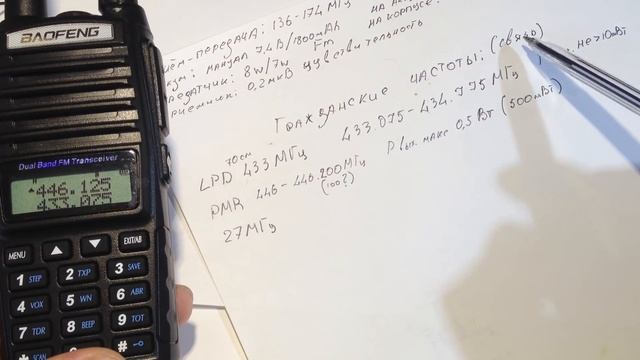 BAOFENG
Dual Band FM Transceiver
446.125
433.075
MENU
EXIT/AB
1 STEP 2 TXP 3 SAVE
4 VOX 5 WN 6 ABR
7 TDR 8 BEEP 9 TOT
* SCAN 0 #
ПЕРЕДАЧА: 136-174 МГц
МАНУАЛ 7,4В/1800mAh НА КОРПУСЕ.
8W/7W Fm
0,2 мкВ ЧУВСТВИТЕЛЬНОСТЬ
ГРАЖДАНСКИЕ ЧАСТОТЫ: (связь)
70см
LPD 433МГц 433.075-434.775 МГц не>10мВт
PMR 446-446.200МГц Pвых. макс 0,5 Вт (500мВт)
(100?)
27МГц